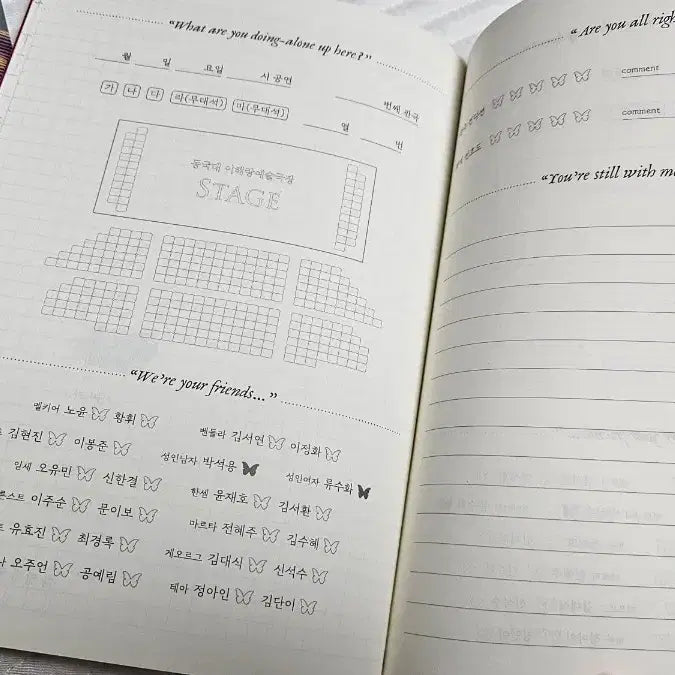 "What are you doing-alone up here?"
월 일 요일 시 공연
번째 관극
가 나 다 라(무대석) 마(무대석)
열 번
동국대 이해랑예술극장
STAGE
"We're your friends..."
멜키어 노윤 황휘
벤들라 김서연 이정화
김현진 이봉준
성인남자 박석용
성인여자 류수화
일세 오유민 신한결
한센 윤재호 김서환
이주순 문이보
마르타 전혜주 김수혜
유효진 최경록
게오르그 김대식 신석수
오주언 공예림
테아 정아인 김단이
"Are you all righ
comment
comment
"You're still with m